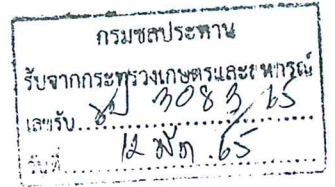 กรมชลประทาน
รับจากกระทรวงเกษตรและสหกรณ์
เลขรับ ชป 3083/65
วันที่ 12 มีค 65